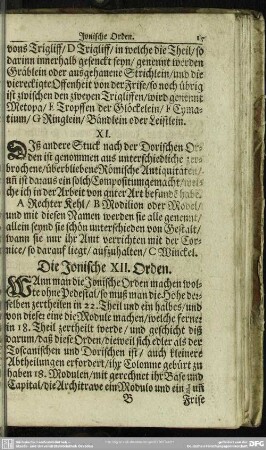 Jonische Orden. 17
vons Trigliff/ D Trigliff/ in welche die Theil/ so
darinn innerhalb gesenckt seyn/ genennt werden
Gräblein oder ausgehauene Strichlein/ und die
viereckigte Offenheit von der Frise/ so noch übrig
ist zwischen den zweyen Trigliffen/ wird genennt
Metopa/ E Tropffen der Glöckelein/ F Cyma-
tium/ G Ringlein/ Bändlein oder Leistlein.
XI.
Diß andere Stuck nach der Dorischen Or-
den ist genommen aus unterschiedliche zer-
brochene/ überbliebene Römische Antiquitäten/
uñ ist daraus ein solch Compositum gemacht/ wel-
che ich in der Arbeit von guter Art befunden habe.
A Rechter Kehl/ B Modilion oder Model/
und mit diesen Namen werden sie alle genennt/
allein seynd sie schön unterschieden von Gestalt/
wann sie nur ihr Amt verrichten mit der Cor-
nice/ so darauf liegt/ aufzuhalten/ C Winckel.
Die Jonische XII. Orden.
Wann man die Jonische Orden machen wol-
te ohne Pedestal/ so muß man die Höhe der-
selben zertheilen in 22. Theil und ein halbes/ und
von dieser eine die Module machen/ welche ferner
in 18. Theil zertheilt werde/ und geschicht diß
darum/ daß diese Orden/ dieweil sich edler als der
Toscanischen und Dorischen ist/ auch kleinere
Abtheilungen erfordert/ ihr Colonne gebürt zu
haben 18. Modulen/ mit gerechnet ihr Base und
Capital/ die Architrave ein Modulo und ein uñ
B Frise